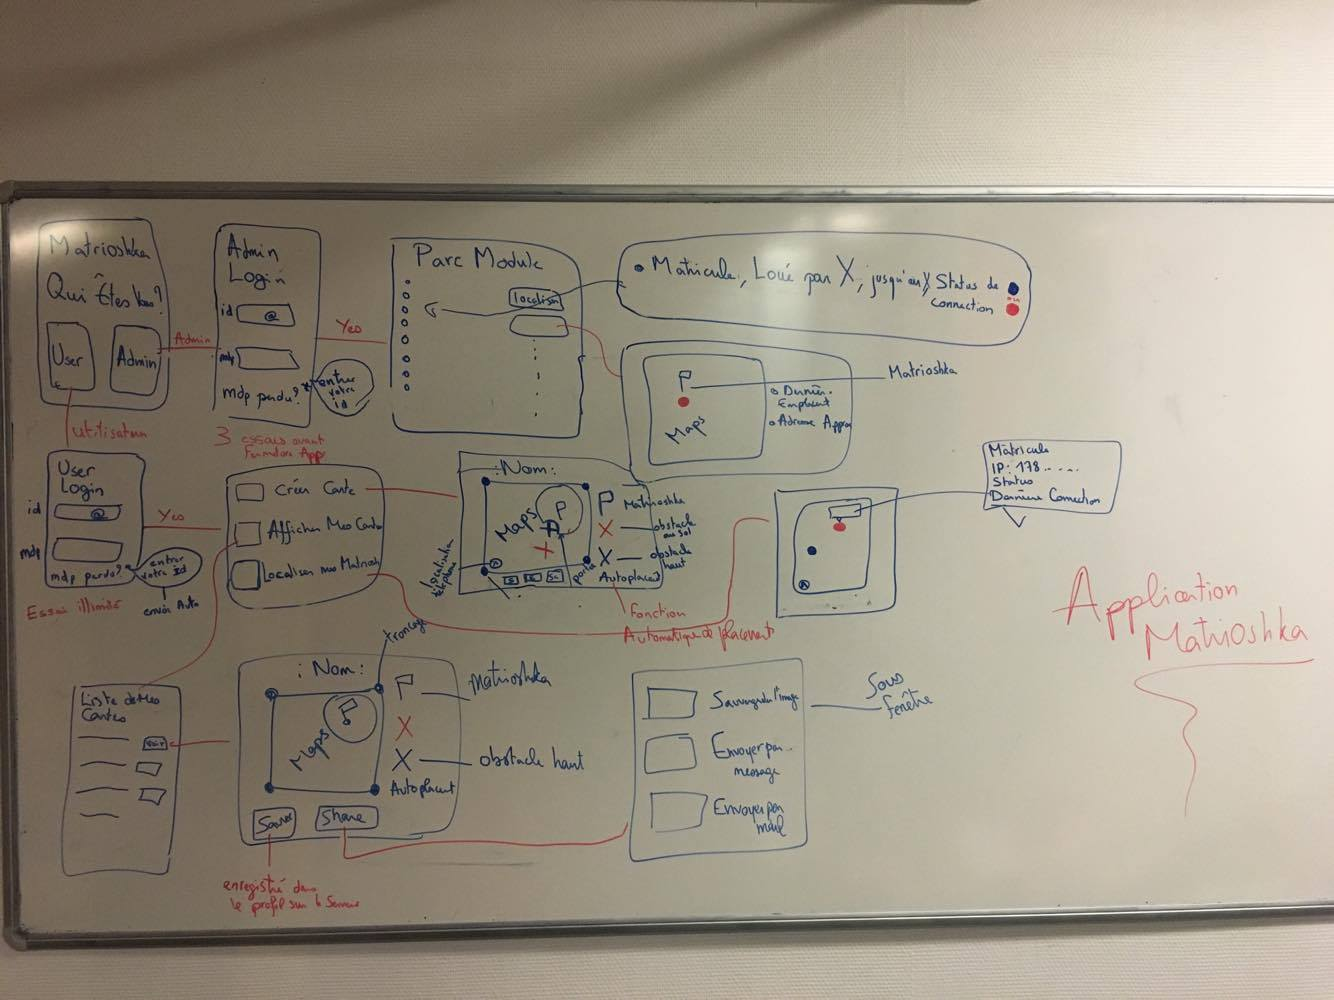 Matrioshka
Qui Êtes Vous?
User
Admin
Admin
utilisateur
Admin
Login
id
@
mdp
mdp perdu?
entrer
votre
id
3 essais avant
Fermeture App
Yes
Parc Module
localiser
• Matricule, Loué par X, jusqu'au Y Status de
connection
Maps
Matrioshka
Dernier
Emplacent
Adresse Approx
User
Login
id
@
mdp
mdp perdu?
entrer
votre Id
envoi Auto
Essai illimité
Yes
Créer Carte
Afficher Mes Cartes
Localiser mes Matriosh
: Nom :
Maps
P
localisation
téléphone
portée
P Matrioshka
X obstacle
au sol
X obstacle
haut
Autoplacent
Fonction
Automatique de placement
Matricule
IP: 178.....
Status
Dernière Connection
Application
Matrioshka
Liste de Mes
Cartes
voir
: Nom :
Maps
P
P Matrioshka
X
X obstacle haut
Autoplacent
Save
Share
enregistré dans
le profil sur le Serveur
Sauvegarder l'image
Envoyer par
message
Envoyer par
mail
Sous
fenêtre